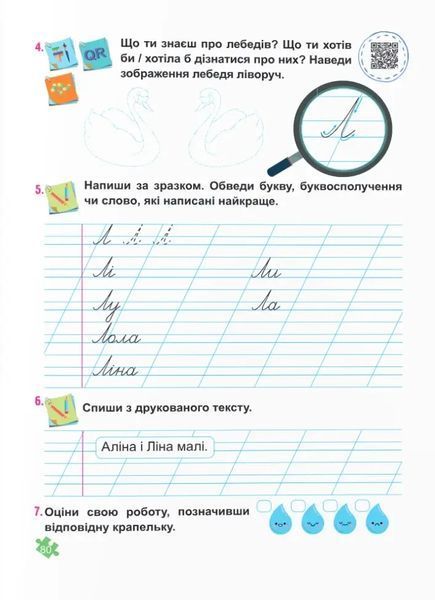 4. QR Що ти знаєш про лебедів? Що ти хотів
би / хотіла б дізнатися про них? Наведи
зображення лебедя ліворуч.
Л
5. Напиши за зразком. Обведи букву, буквосполучення
чи слово, які написані найкраще.
Л Л Л
Лі Ли
Лу Ла
Лола
Ліна
6. Спиши з друкованого тексту.
Аліна і Ліна малі.
7. Оціни свою роботу, позначивши
відповідну крапельку.
80